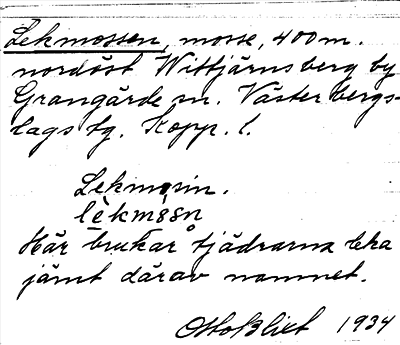 Lekmossen, mosse, 400 m.
nordöst Wittjärnsberg by
Grangärde sn. Västerbergs-
lags tg. Kopp. l.
Lekmosin.
lèkmssn
Här brukar tjädrarna leka
jämt därav namnet.
Otto Blixt 1934